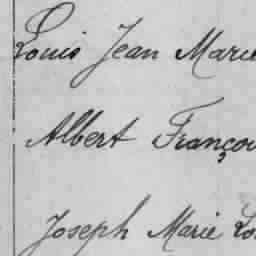 Louis Jean Marie
Albert Françou
Joseph Marie Lo